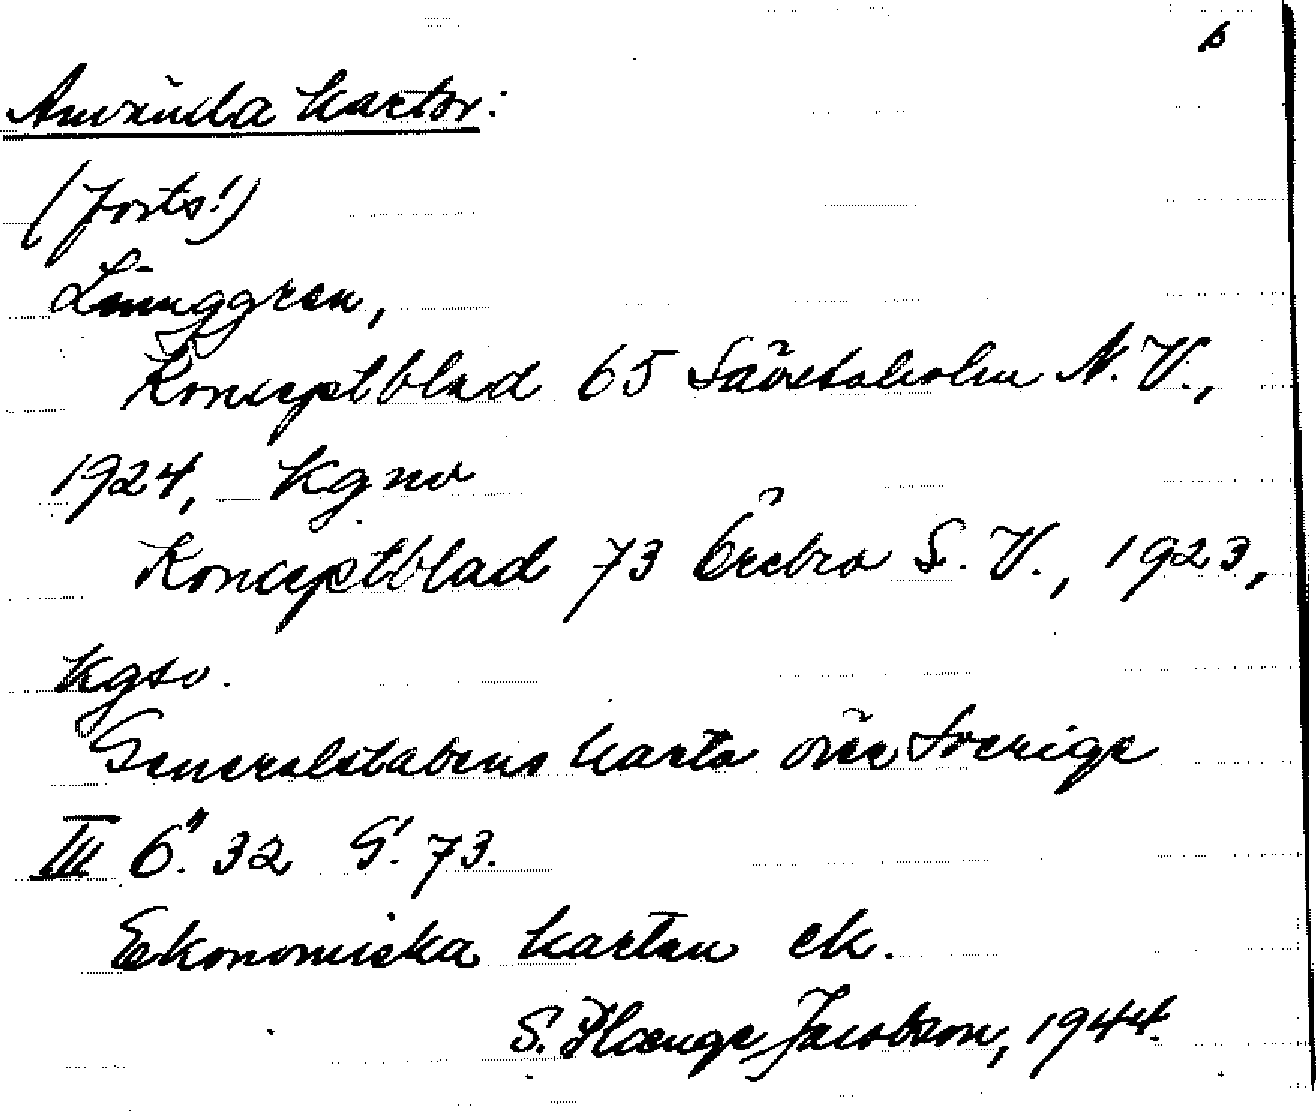 6
Använda kartor:
(forts!)
Ljunggren,
Konceptblad 65 Säbstaholm N.V.,
1924, kgnv
Konceptblad 73 Örebro S.V., 1923,
kgsv.
Generalstabens karta över Sverige
III 6". 32 G!. 73.
Ekonomiska kartan ek.
S. Hænge Jacobson, 1944.